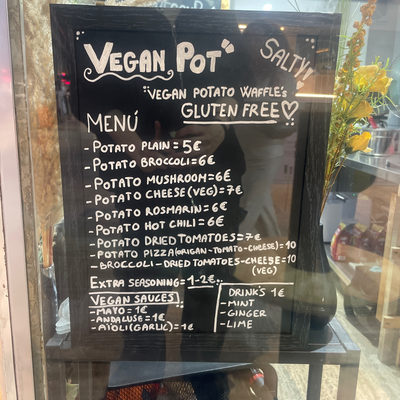 VEGAN POT
SALTY!
"VEGAN POTATO WAFFLE'S
GLUTEN FREE
MENÚ
-POTATO PLAIN = 5€
-POTATO BROCCOLI = 6€
-POTATO MUSHROOM = 6€
-POTATO CHEESE (VEG) = 7€
-POTATO ROSMARIN = 6€
-POTATO HOT CHILI = 6€
-POTATO DRIED TOMATOES = 7€
-POTATO PIZZA (ORIGAN-TOMATO-CHEESE) = 10
-BROCCOLI-DRIED TOMATOES-CHEESE = 10
(VEG)
EXTRA SEASONING = 1-2€..
VEGAN SAUCES
-MAYO = 1€
-ANDALUSE = 1€
-AÏOLI (GARLIC) = 1€
DRINK'S 1€
-MINT
-GINGER
-LIME